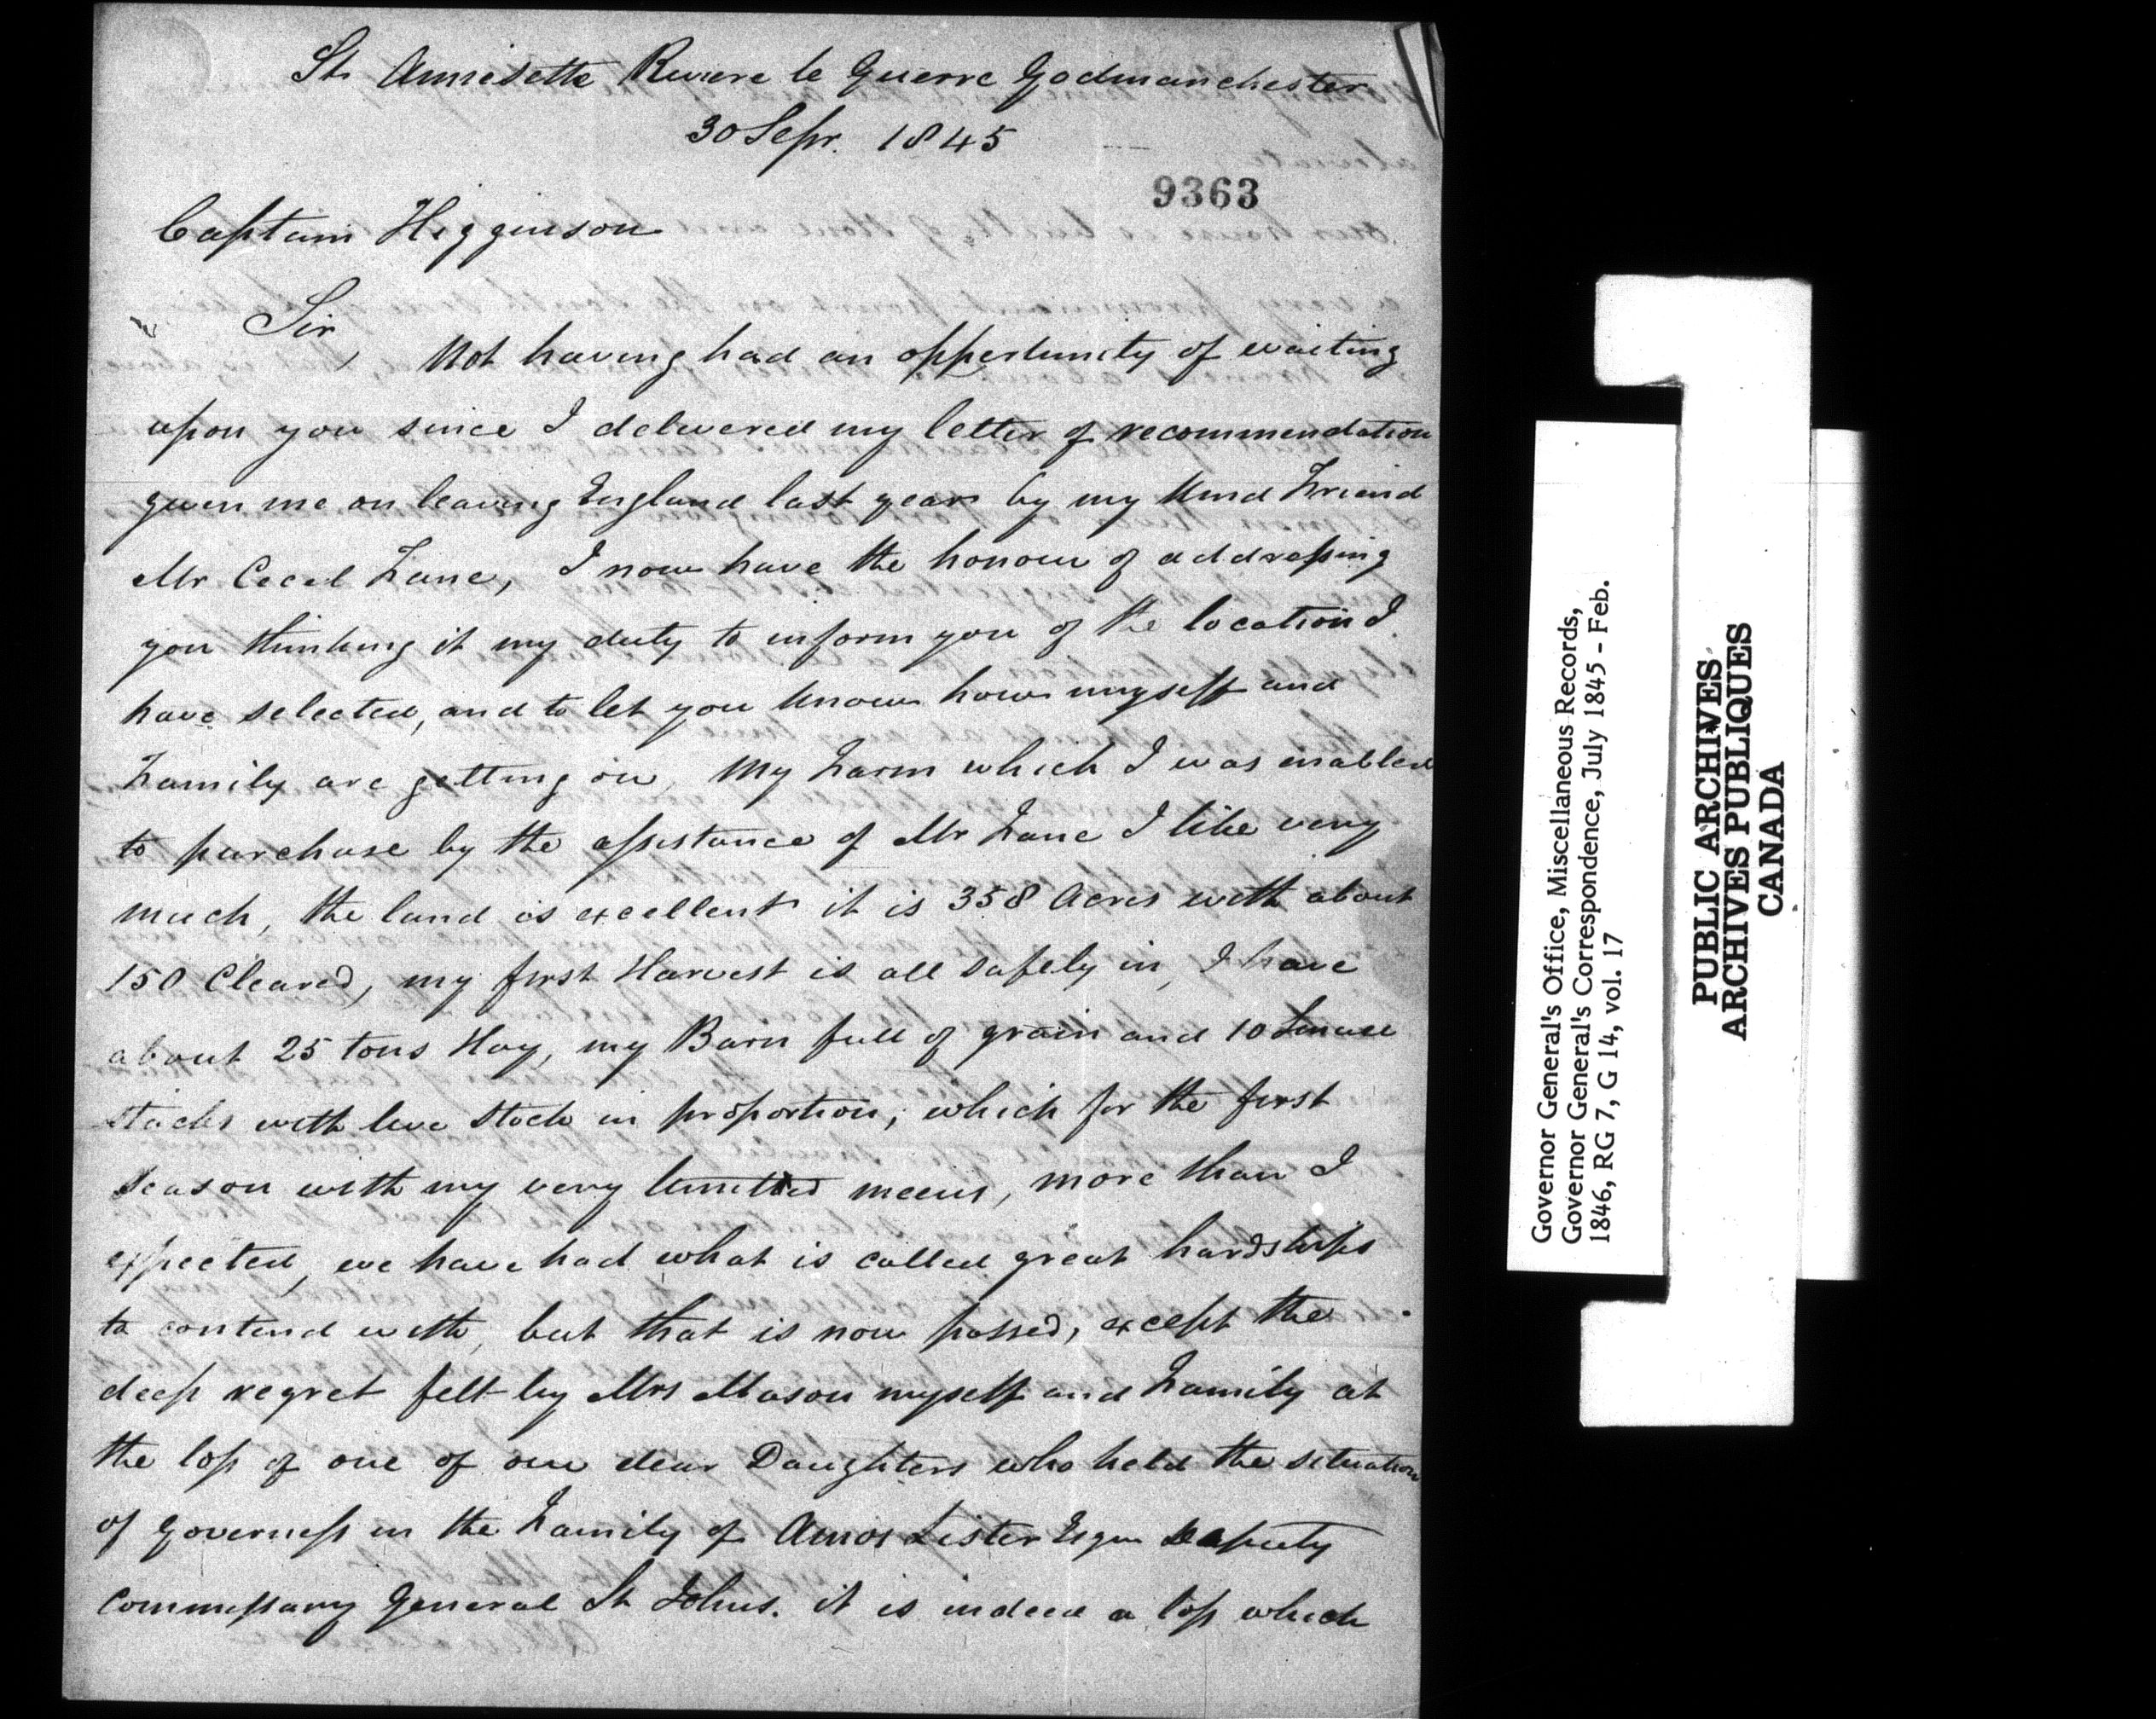 St. Annisette Riviere le Guerre Godmanchester
30 Sepr. 1845
9363
Captain Higginson
Sir,
Not having had an oppertunity of waiting
upon you since I delivered my letter of recommendation
given me on leaving England last year by my kind Friend
Mr Cecil Fane, I now have the honour of addressing
you thinking it my duty to inform you of the location I
have selected, and to let you know how myself and
Family are getting on, My Farm which I was enabled
to purchase by the assistance of Mr Fane I like very
much, the land is excellent it is 358 Acres with about
150 Cleared, my first Harvest is all safely in, I have
about 25 tons Hay, my Barn full of grain and 10 Small
stacks with live stock in proportion, which for the first
season with my very limitted means, more than I
expected, we have had what is called great hardships
to contend with, but that is now passed, except the
deep regret felt by Mrs Mason myself and Family at
the loss of one of our dear Daughters who held the situation
of Governess in the Family of Amos Lister Esqre Deputy
Commissary General St Johns. it is indeed a loss which
Governor General's Office, Miscellaneous Records,
Governor General's Correspondence, July 1845 - Feb.
1846, RG 7, G 14, vol. 17
PUBLIC ARCHIVES
ARCHIVES PUBLIQUES
CANADA